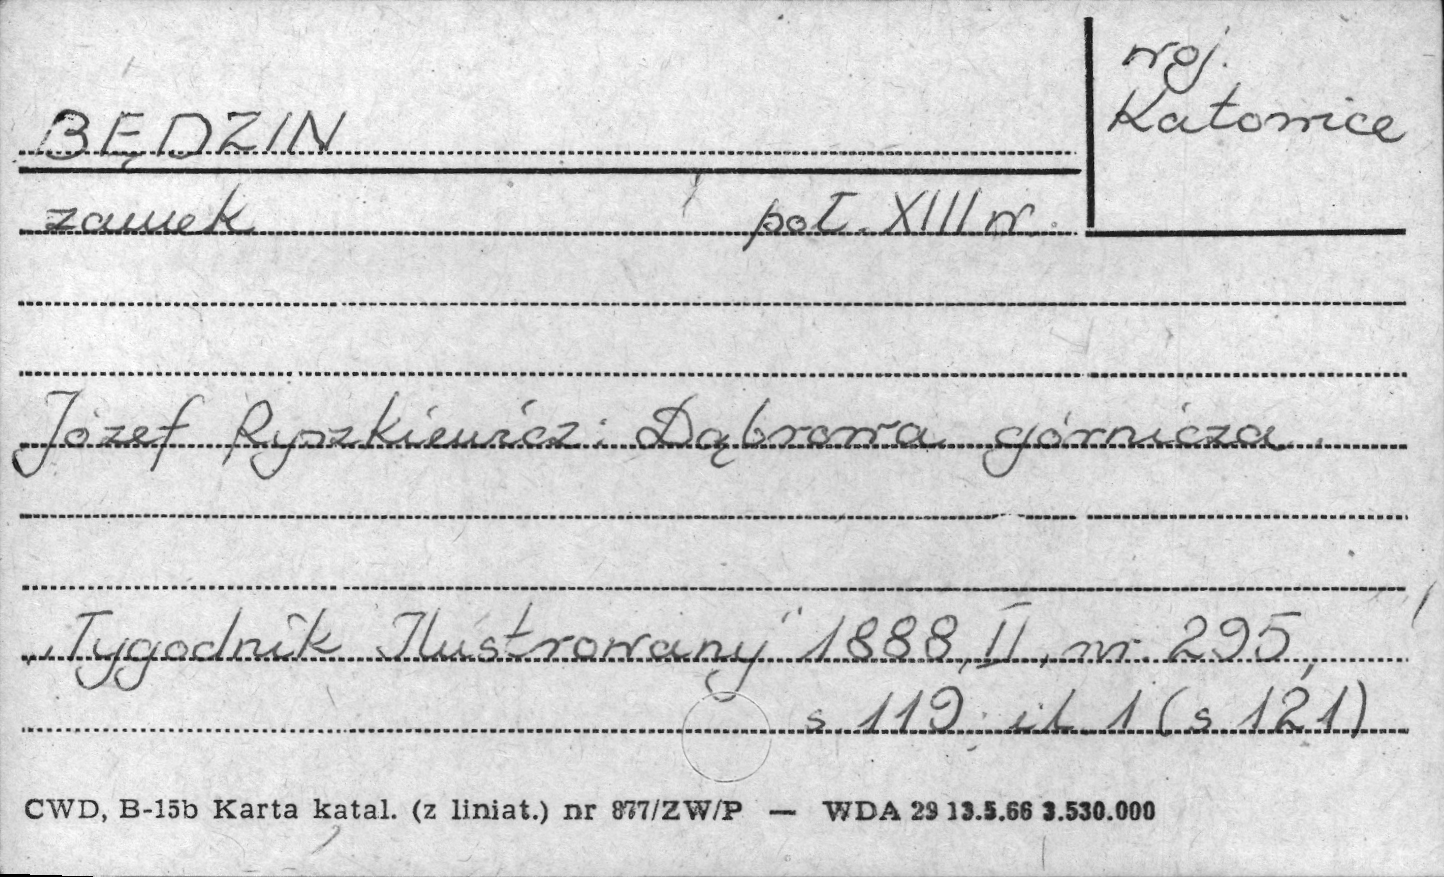 woj.
Katowice
BĘDZIN
zamek poł. XIII w.
Józef Ryszkiewicz: Dąbrowa górnicza.
„Tygodnik Ilustrowany" 1888, II, nr. 295,
s. 119. il. 1 (s. 121)
CWD, B-15b Karta katal. (z liniat.) nr 877/ZW/P — WDA 29 13.5.66 3.530.000